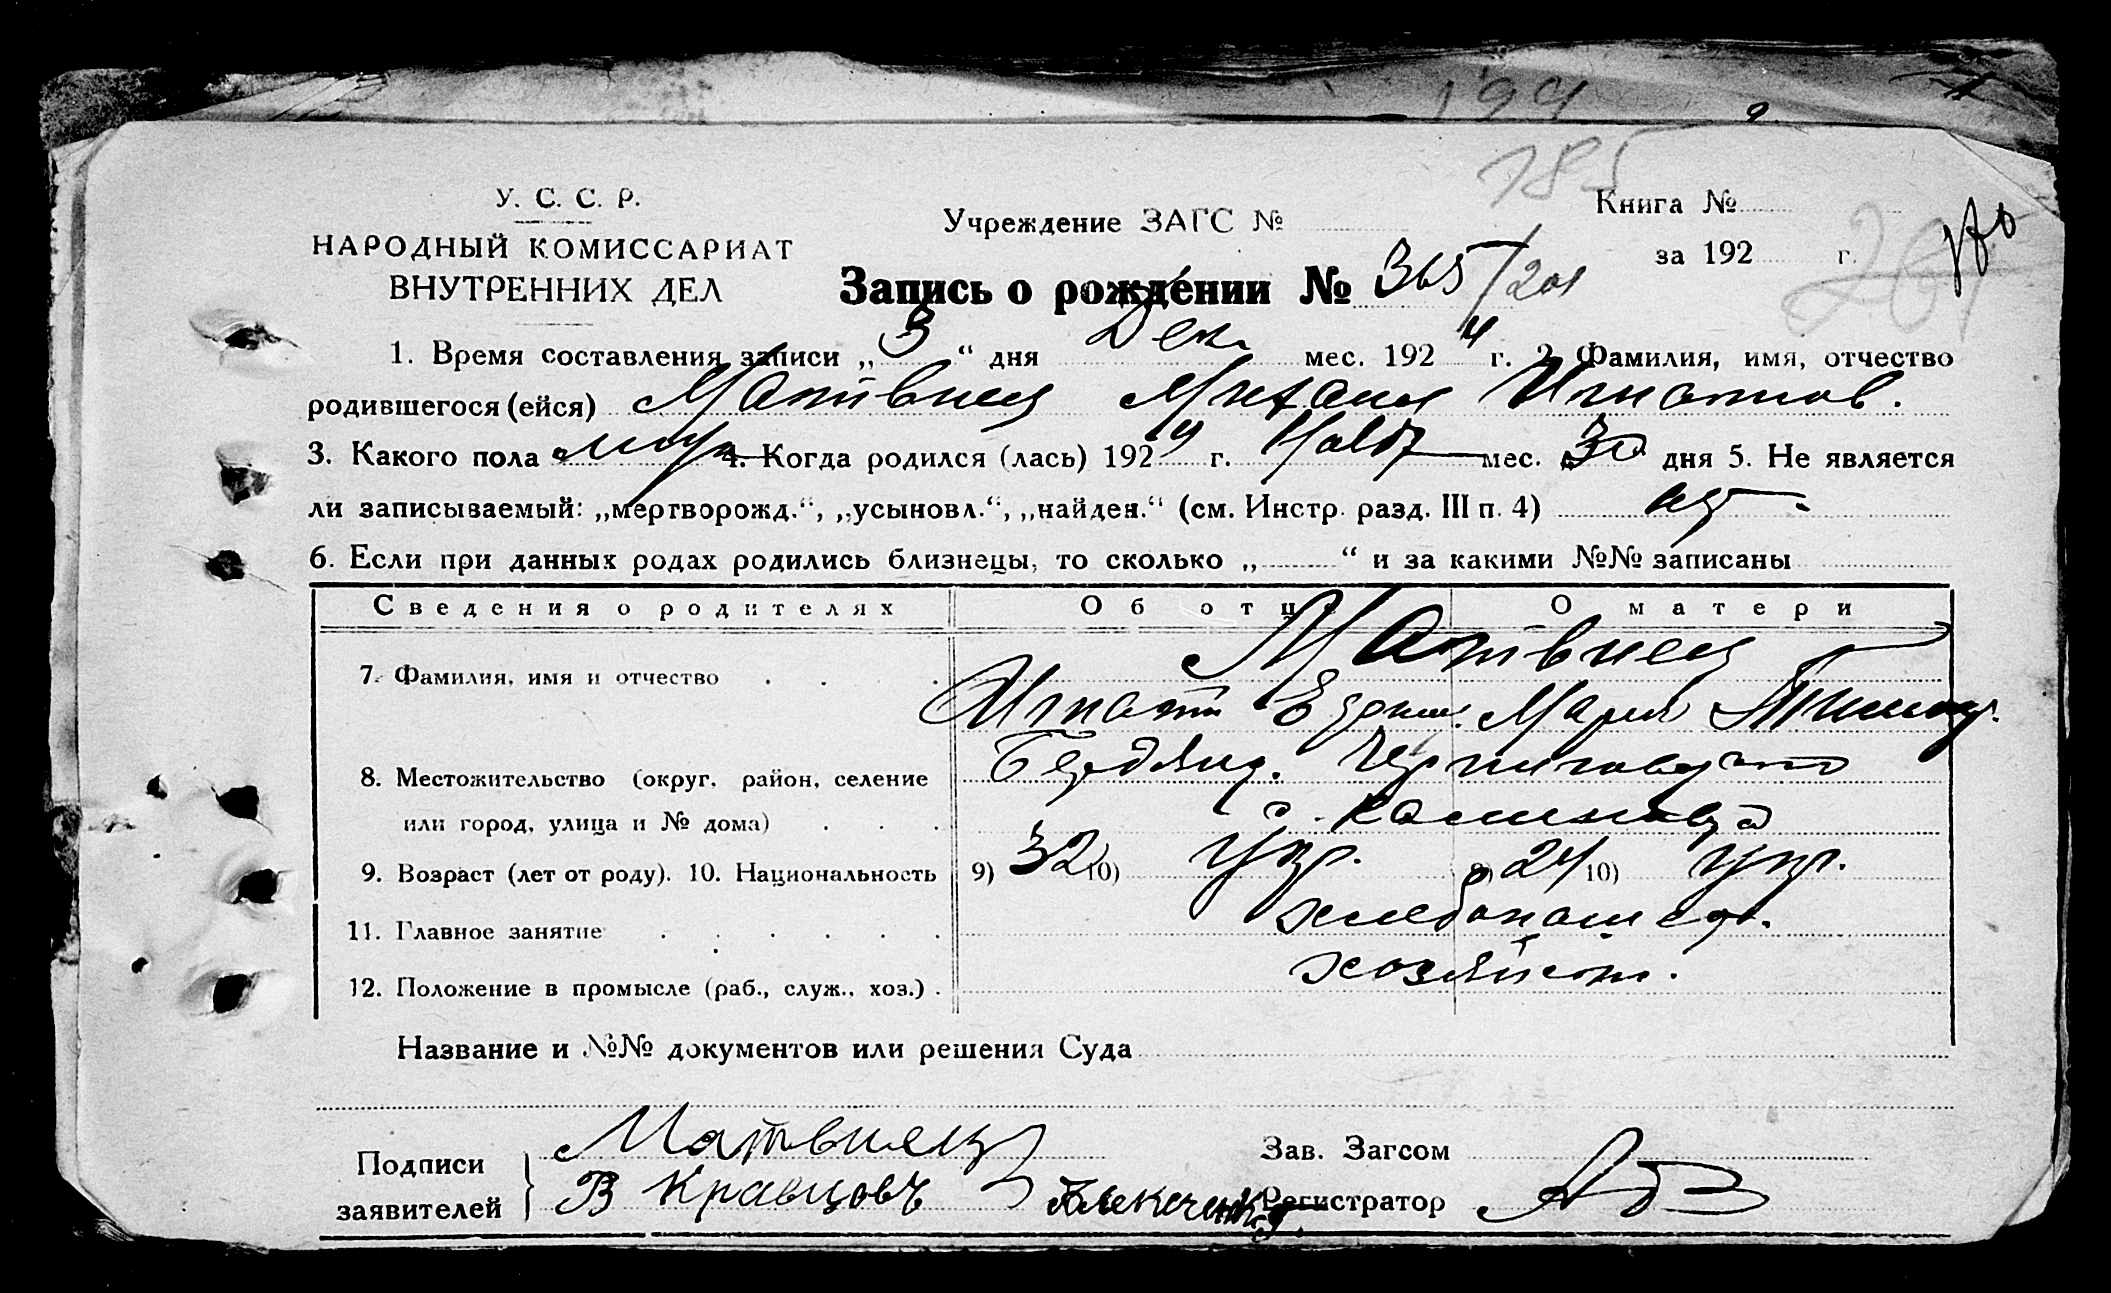 194
185
У. С. С. Р.
НАРОДНЫЙ КОМИССАРИАТ
ВНУТРЕННИХ ДЕЛ
Учреждение ЗАГС №
Книга №
за 192 г.
201
Запись о рождении № 365/201
1. Время составления записи „3“ дня Дек. мес. 1924 г. 2. Фамилия, имя, отчество
родившегося (ейся) Матвиец Михаил Игнатов.
3. Какого пола муж 4. Когда родился (лась) 1924 г. Нояб мес. 30 дня 5. Не является
ли записываемый: „мертворожд.“, „усыновл.“, „найден.“ (см. Инстр. разд. III п. 4)
6. Если при данных родах родились близнецы, то сколько „ “ и за какими №№ записаны
Сведения о родителях Об отце О матери
7. Фамилия, имя и отчество Матвиец
Игнат Мария
8. Местожительство (округ, район, селение Бердянц. Черниговского
или город, улица и № дома) с.
9. Возраст (лет от роду). 10. Национальность 9) 32 10) Укр. 9) 24 10) укр.
11. Главное занятие хлебопашество.
12. Положение в промысле (раб., служ., хоз.) хозяйств.
Название и №№ документов или решения Суда
Подписи Матвиец Зав. Загсом
заявителей В Кравцовъ Регистратор